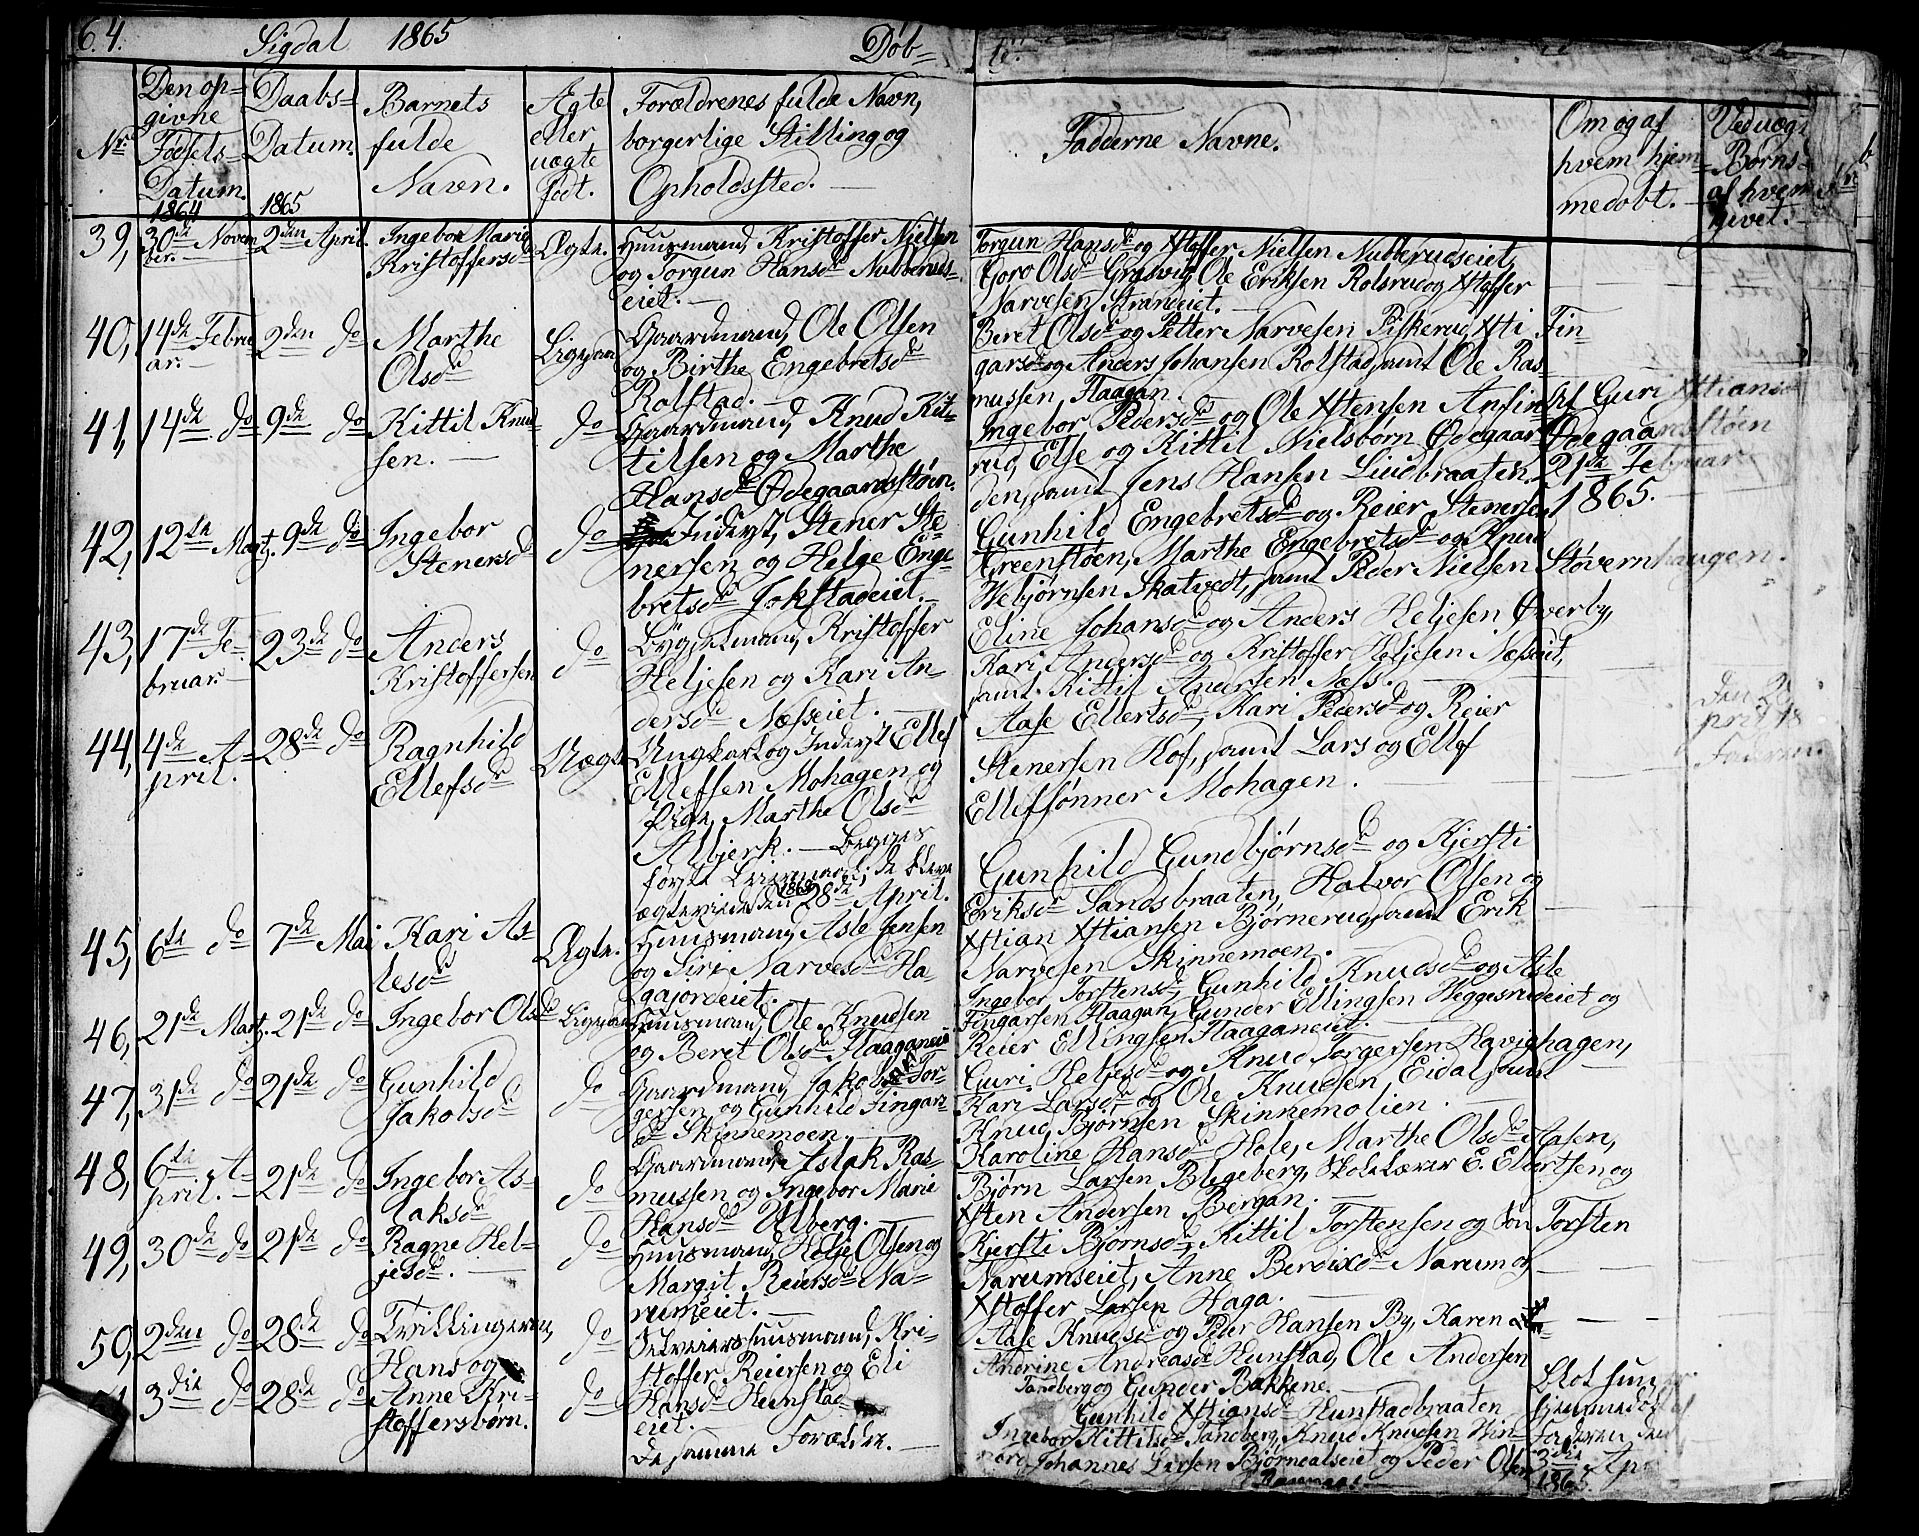 64.
Sigdal 1865
Døb=
te.
Nr.
Den op=
givne
Fødsels=
Datum.
1864
Daabs=
Datum.
1865
Barnets
fulde
Navn.
Ægte
eller
uægte
født.
Forældrenes fulde Navn,
borgerlige Stilling og
Opholdssted.
Faddernes Navne.
Om og af
hvem hjem=
medøbt.
Ved uægt
Børns
af hvem
39, 30de Novem
ber.
2den April.
Ingebor Marie
Kristoffersdr
Ægte.
Huusmand, Kristoffer Nielsen
og Torgun Hansdr Nubberuds=
eiet.
Torgun Hansdr og Xstoffer Nielsen Nubberudseiet,
Gjøro Olsdr Græsvig, Ole Eriksen Rolsrud og Xstoffer
Narvesen Strandeiet.
40, 14de Febru
ar.
2den do
Marthe
Olsdr
Ligesaa
Gaardmand, Ole Olsen
og Birthe Engebretsdr
Rolstad.
Beret Olsdr og Petter Narvesen Piskerud, Xsti Fin
garsdr og Anders Johansen Rolstad, samt Ole Ras=
mussen, Haagan.
41, 14de do 9de do
Kittil Knud
sen.
do
Gaardmand, Knud Kit=
tilsen og Marthe
Hansdr Ødegaardsstøen.
Ingebor Pedersdr og Ole Xstensen Anfin
rud, Else og Kittil Nielsbørn Ødegaar
den, samt Jens Hansen Lindbraaten.
Af Guri Xstiansdr
Ødegaardsstøen
21de Februar
1865.
42, 12te Marts. 9de do
Ingebor
Stenersdr
do
Inderst, Stener Ste
nersen og Helge Enge
bretsdr Jokstadeiet.
Gunhild Engebretsdr og Reier Stenersen
Greenstøen, Marthe Engebretsdr og Knud
Hebjørnsen Skatvedt, samt Peder Nielsen Støvernhaugen.
43, 17de Fe=
bruar
23de do
Anders
Kristoffersen
do
Bygselmand, Kristoffer
Heljesen og Kari An=
dersdr Næsseiet.
Eline Johansdr og Anders Heljesen Øverby,
Kari Andersdr og Kristoffer Heljesen Næsseiet,
samt Kittil Andersen Næss.
44, 4de A=
pril.
28de do
Ragnhild
Ellefsdr
Uægte
Ungkarl og Inderst Ellef
Ellefsen Mohagen og
Pige, Marthe Olsdr
Albjerk. — Begges
første Leiermaal; de bleve
ægteviede den 28de April.
1865
Aase Ellertsdr, Kari Pedersdr og Reier
Stenersen Hof, samt Lars og Ellef
Ellefsønner Mohagen.
45, 6te do 7de Mai
Kari As=
lesdr
Ægte.
Huusmand, Asle Jensen
og Siri Narvesdr Ha=
gajordeiet.
Gunhild Gundbjørnsdr og Kjersti
Eriksdr Sandsbraaten, Halvor Olsen og
Xstian Xstiansen Bjørnerud, samt Erik
Narvesen Skinnemoen.
46, 21de Marts. 21de do
Ingebor Olsdr
Ligesaa
Huusmand, Ole Knudsen
og Beret Olsdr Haaganeiet
Ingebor Torstensdr, Gunhild Knudsdr og Asle
Fingarsen Haagan, Gunder Ellingsen Heggesrudeiet og
Reier Ellingsen Haaganeiet.
47, 31de do 21de do
Gunhild
Jakobsdr
do
Gaardmand, Jakob Tor=
gersen og Gunhild Fingars
dr Skinnemoen.
Guri Heljesdr og Knud Torgersen Havighagen,
Kari Larsdr og Ole Knudsen, Eidal, samt
Knud Bjørnsen Skinnemolien.
48, 6te A=
pril.
21de do
Ingebor As=
laksdr
do
Gaardmand, Aslak Ras=
mussen og Ingebor Marie
Hansdr Ulberg.
Karoline Hansdr Hole, Marthe Olsdr Aasen,
Bjørn Larsen Blegeberg, Skolelærer E. Ellertsen og
Xsten Andersen Bergan.
49, 30de do 21de do
Ragne Hel=
jesdr.
do
Huusmand, Helje Olsen og
Margit Reiersdr Na=
rumseiet.
Kjersti Bjørnsdr, Kittil Torstensen og Søn Torsten
Narumseiet, Anne Berdixdr Narum og
Xstoffer Larsen Haga.
50, 2den do 28de do
Tvillingerne,
Hans og
do
Selveierhuusmand, Kri=
stoffer Reiersen og Eli
Hansdr Hunstad
eiet.
Aase Knudsdr og Peder Hansen By, Karen
Andrine Andreasdr Hunstad, Ole Andersen
Tandberg og Gunder Bakkene.
3die do 28de do
Anne Kri=
stoffersbørn.
do
De samme Forældre.
Gunhild Xstiansdr Hunstadbraaten
Ingebor Kittilsdr Tandberg, Knud Knudsen Win=
Johannes Larsen Bjørnealseiet og Peder Olsen
Blot
Hjemmedøbt af
Faderen den
3die Apr
1865.